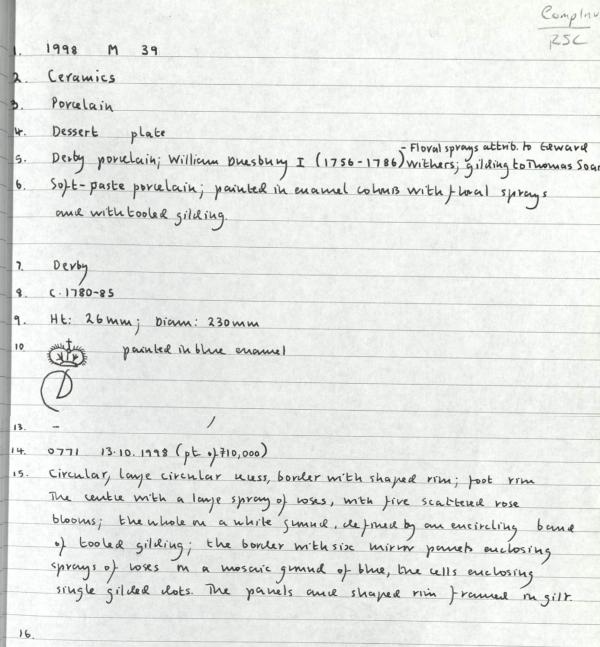 CompInv
RSC
1. 1998 M 39
2. Ceramics
3. Porcelain
4. Dessert plate
- Floral sprays attrib. to Edward
5. Derby porcelain; William Duesbury I (1756-1786) Withers; gilding to Thomas Soar
6. Soft-paste porcelain; painted in enamel colours with floral sprays
and with tooled gilding.
7. Derby
8. c. 1780-85
9. Ht: 26mm; Diam: 230mm
10 painted in blue enamel
D
13. -
14. 0771 13.10.1998 (pt of 710,000)
15. Circular, large circular recess, border with shaped rim; foot rim
The centre with a large spray of roses, with five scattered rose
blooms; the whole on a white ground, defined by an encircling band
of tooled gilding; the border with six mirror panels enclosing
sprays of roses on a mosaic ground of blue, the cells enclosing
single gilded dots. The panels and shaped rim framed in gilt.
16.